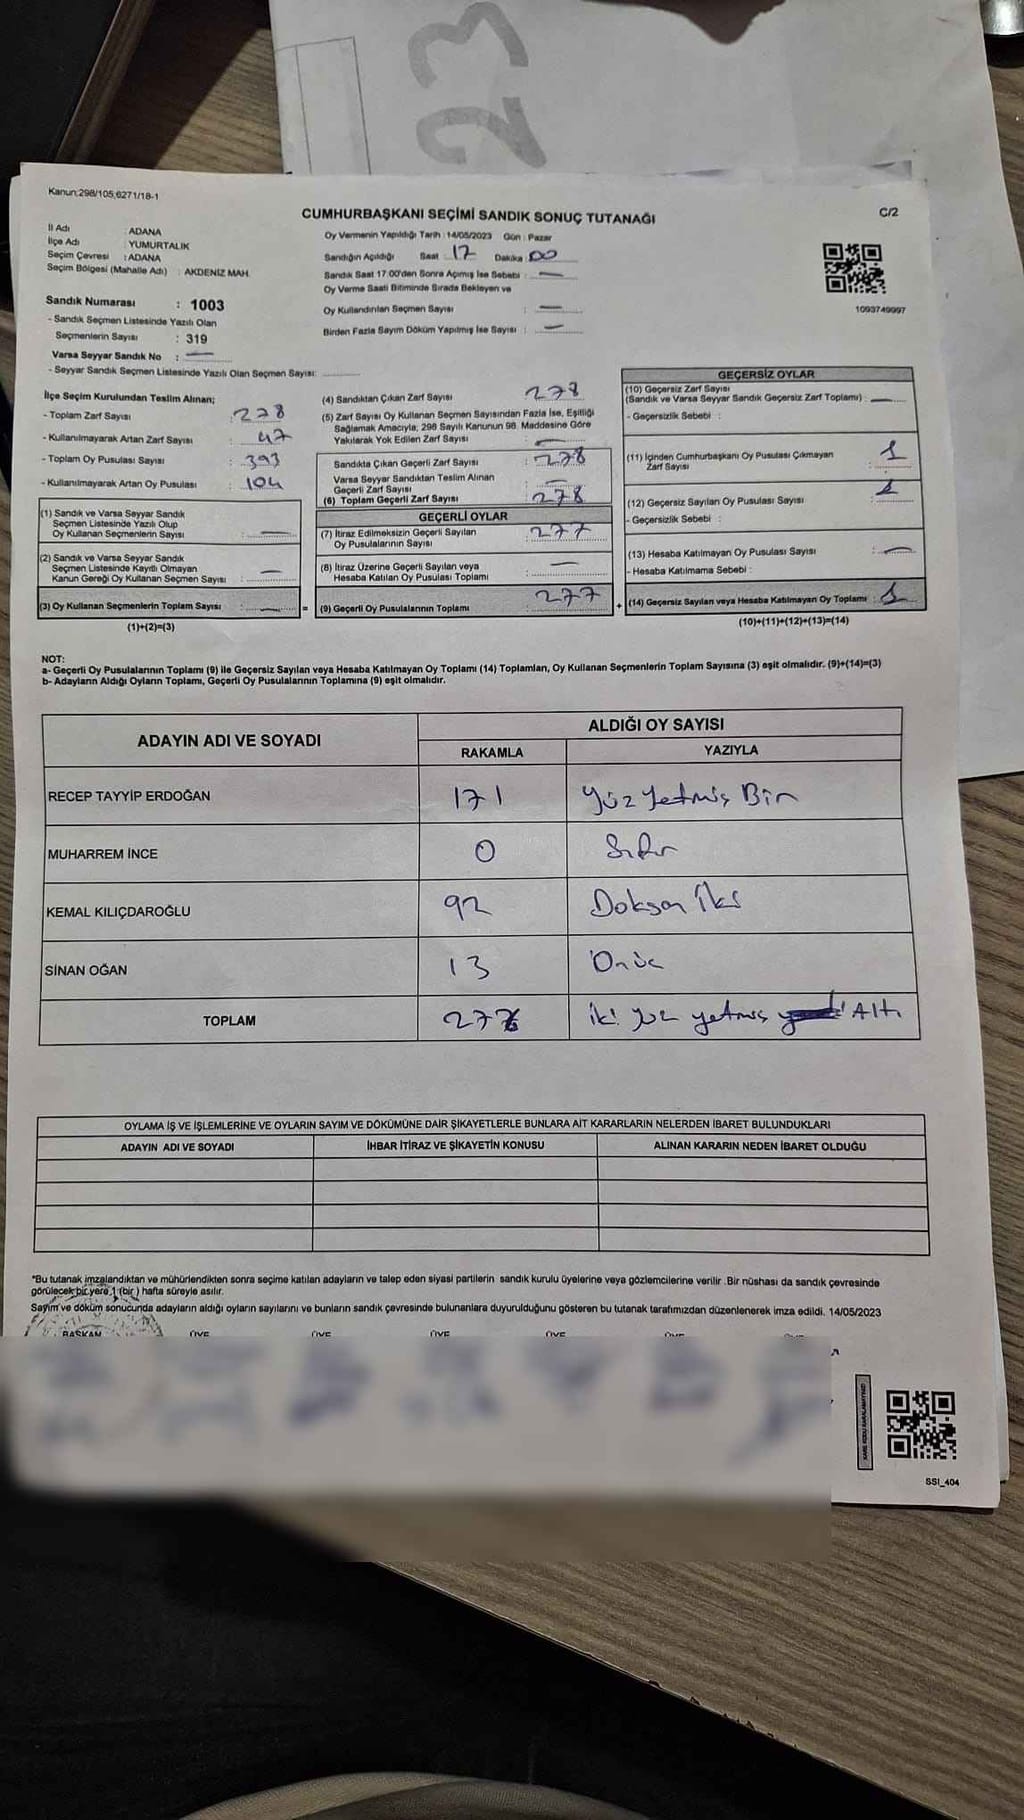 23
Kanun;298/105;6271/18-1
CUMHURBAŞKANI SEÇİMİ SANDIK SONUÇ TUTANAĞI
C/2
İl Adı : ADANA
İlçe Adı : YUMURTALIK
Seçim Çevresi : ADANA
Seçim Bölgesi (Mahalle Adı) : AKDENİZ MAH.
Oy Vermenin Yapıldığı Tarih : 14/05/2023 Gün : Pazar
Sandığın Açıldığı Saat 17 Dakika 00
Sandık Saat 17:00'den Sonra Açımış İse Sebebi : —
Oy Verme Saati Bitiminde Sırada Bekleyen ve
Oy Kullandırılan Seçmen Sayısı : —
Birden Fazla Sayım Döküm Yapılmış İse Sayısı : —
1093749997
Sandık Numarası : 1003
- Sandık Seçmen Listesinde Yazılı Olan
Seçmenlerin Sayısı : 319
Varsa Seyyar Sandık No : —
- Seyyar Sandık Seçmen Listesinde Yazılı Olan Seçmen Sayısı:
İlçe Seçim Kurulundan Teslim Alınan;
- Toplam Zarf Sayısı : 278
- Kullanılmayarak Artan Zarf Sayısı : 47
- Toplam Oy Pusulası Sayısı : 393
- Kullanılmayarak Artan Oy Pusulası : 104
(1) Sandık ve Varsa Seyyar Sandık
Seçmen Listesinde Yazılı Olup
Oy Kullanan Seçmenlerin Sayısı : —
(2) Sandık ve Varsa Seyyar Sandık
Seçmen Listesinde Kayıtlı Olmayan
Kanun Gereği Oy Kullanan Seçmen Sayısı : —
(3) Oy Kullanan Seçmenlerin Toplam Sayısı : —
(1)+(2)=(3)
=
(4) Sandıktan Çıkan Zarf Sayısı : 278
(5) Zarf Sayısı Oy Kullanan Seçmen Sayısından Fazla İse, Eşitliği
Sağlamak Amacıyla; 298 Sayılı Kanunun 98. Maddesine Göre
Yakılarak Yok Edilen Zarf Sayısı : —
Sandıkta Çıkan Geçerli Zarf Sayısı : 278
Varsa Seyyar Sandıktan Teslim Alınan
Geçerli Zarf Sayısı : —
(6) Toplam Geçerli Zarf Sayısı : 278
GEÇERLİ OYLAR
(7) İtiraz Edilmeksizin Geçerli Sayılan
Oy Pusulalarının Sayısı : 277
(8) İtiraz Üzerine Geçerli Sayılan veya
Hesaba Katılan Oy Pusulası Toplamı : —
(9) Geçerli Oy Pusulalarının Toplamı : 277
+
GEÇERSİZ OYLAR
(10) Geçersiz Zarf Sayısı
(Sandık ve Varsa Seyyar Sandık Geçersiz Zarf Toplamı) : —
- Geçersizlik Sebebi :
(11) İçinden Cumhurbaşkanı Oy Pusulası Çıkmayan
Zarf Sayısı : 1
(12) Geçersiz Sayılan Oy Pusulası Sayısı : 1
- Geçersizlik Sebebi :
(13) Hesaba Katılmayan Oy Pusulası Sayısı : —
- Hesaba Katılmama Sebebi :
(14) Geçersiz Sayılan veya Hesaba Katılmayan Oy Toplamı : 1
(10)+(11)+(12)+(13)=(14)
NOT:
a- Geçerli Oy Pusulalarının Toplamı (9) ile Geçersiz Sayılan veya Hesaba Katılmayan Oy Toplamı (14) Toplamları, Oy Kullanan Seçmenlerin Toplam Sayısına (3) eşit olmalıdır. (9)+(14)=(3)
b- Adayların Aldığı Oyların Toplamı, Geçerli Oy Pusulalarının Toplamına (9) eşit olmalıdır.
ADAYIN ADI VE SOYADI
ALDIĞI OY SAYISI
RAKAMLA YAZIYLA
RECEP TAYYİP ERDOĞAN 171 Yüz Yetmiş Bin
MUHARREM İNCE 0 Sıfır
KEMAL KILIÇDAROĞLU 92 Doksan İki
SİNAN OĞAN 13 Onüç
TOPLAM 276 iki yüz yetmiş Altı
OYLAMA İŞ VE İŞLEMLERİNE VE OYLARIN SAYIM VE DÖKÜMÜNE DAİR ŞİKAYETLERLE BUNLARA AİT KARARLARIN NELERDEN İBARET BULUNDUKLARI
ADAYIN ADI VE SOYADI İHBAR İTİRAZ VE ŞİKAYETİN KONUSU ALINAN KARARIN NEDEN İBARET OLDUĞU
*Bu tutanak imzalandıktan ve mühürlendikten sonra seçime katılan adayların ve talep eden siyasi partilerin sandık kurulu üyelerine veya gözlemcilerine verilir .Bir nüshası da sandık çevresinde
görülecek bir yere 1 (bir ) hafta süreyle asılır.
Sayım ve döküm sonucunda adayların aldığı oyların sayılarını ve bunların sandık çevresinde bulunanlara duyurulduğunu gösteren bu tutanak tarafımızdan düzenlenerek imza edildi. 14/05/2023
BAŞKAN ÜYE ÜYE ÜYE ÜYE ÜYE ÜYE
SSI_404